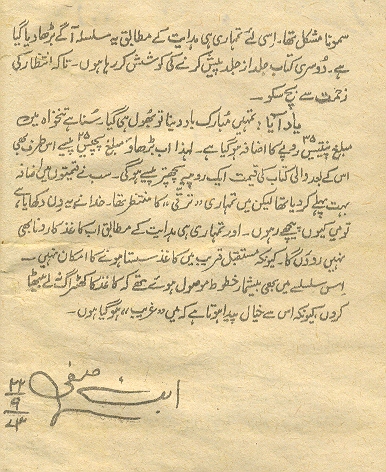 سمونا مشکل تھا۔ اسی لئے تمہاری ہی ہدایت کے مطابق یہ سلسلہ آگے بڑھا دیا گیا
ہے۔ دُوسری کتاب جلد از جلد پیش کرنے کی کوشش کر رہا ہوں۔ تاکہ انتظار کی
زحمت سے بچ سکو۔
یاد آیا! تمہیں مُبارک باد دینا تو بھُول ہی گیا۔ سُنا ہے تنخواہ میں
مبلغ پینتیس ۳۵ روپے کا اضافہ ہو گیا ہے۔ لہٰذا اب بڑھاؤ مبلغ پچیس ۲۵ پیسے اس طرف بھی
اس کے بعد والی کتاب کی قیمت ایک روپیہ پچھتر پیسے ہو گی۔ سب نے قیمتوں میں اضافہ
بہت پہلے کر دیا تھا لیکن میں تمہاری "ترقی" کا منتظر تھا۔ خدا نے یہ دن دکھایا ہے
تو میں کیوں پیچھے رہوں۔ اور تمہاری ہی ہدایت کے مطابق اب کاغذ کا رونا بھی
نہیں روؤں گا۔ کیونکہ مستقبل قریب میں کاغذ سستا ہونے کا امکان نہیں۔
اس سلسلے میں بھی بیشمار خطوط موصول ہوئے تھے کہ کاغذ کا کھڑاگ نہ لے بیٹھا
کروں، کیونکہ اس سے خیال پیدا ہوتا ہے کہ میں "غریب" ہو گیا ہوں۔
ابن صفی
۹
۷۳